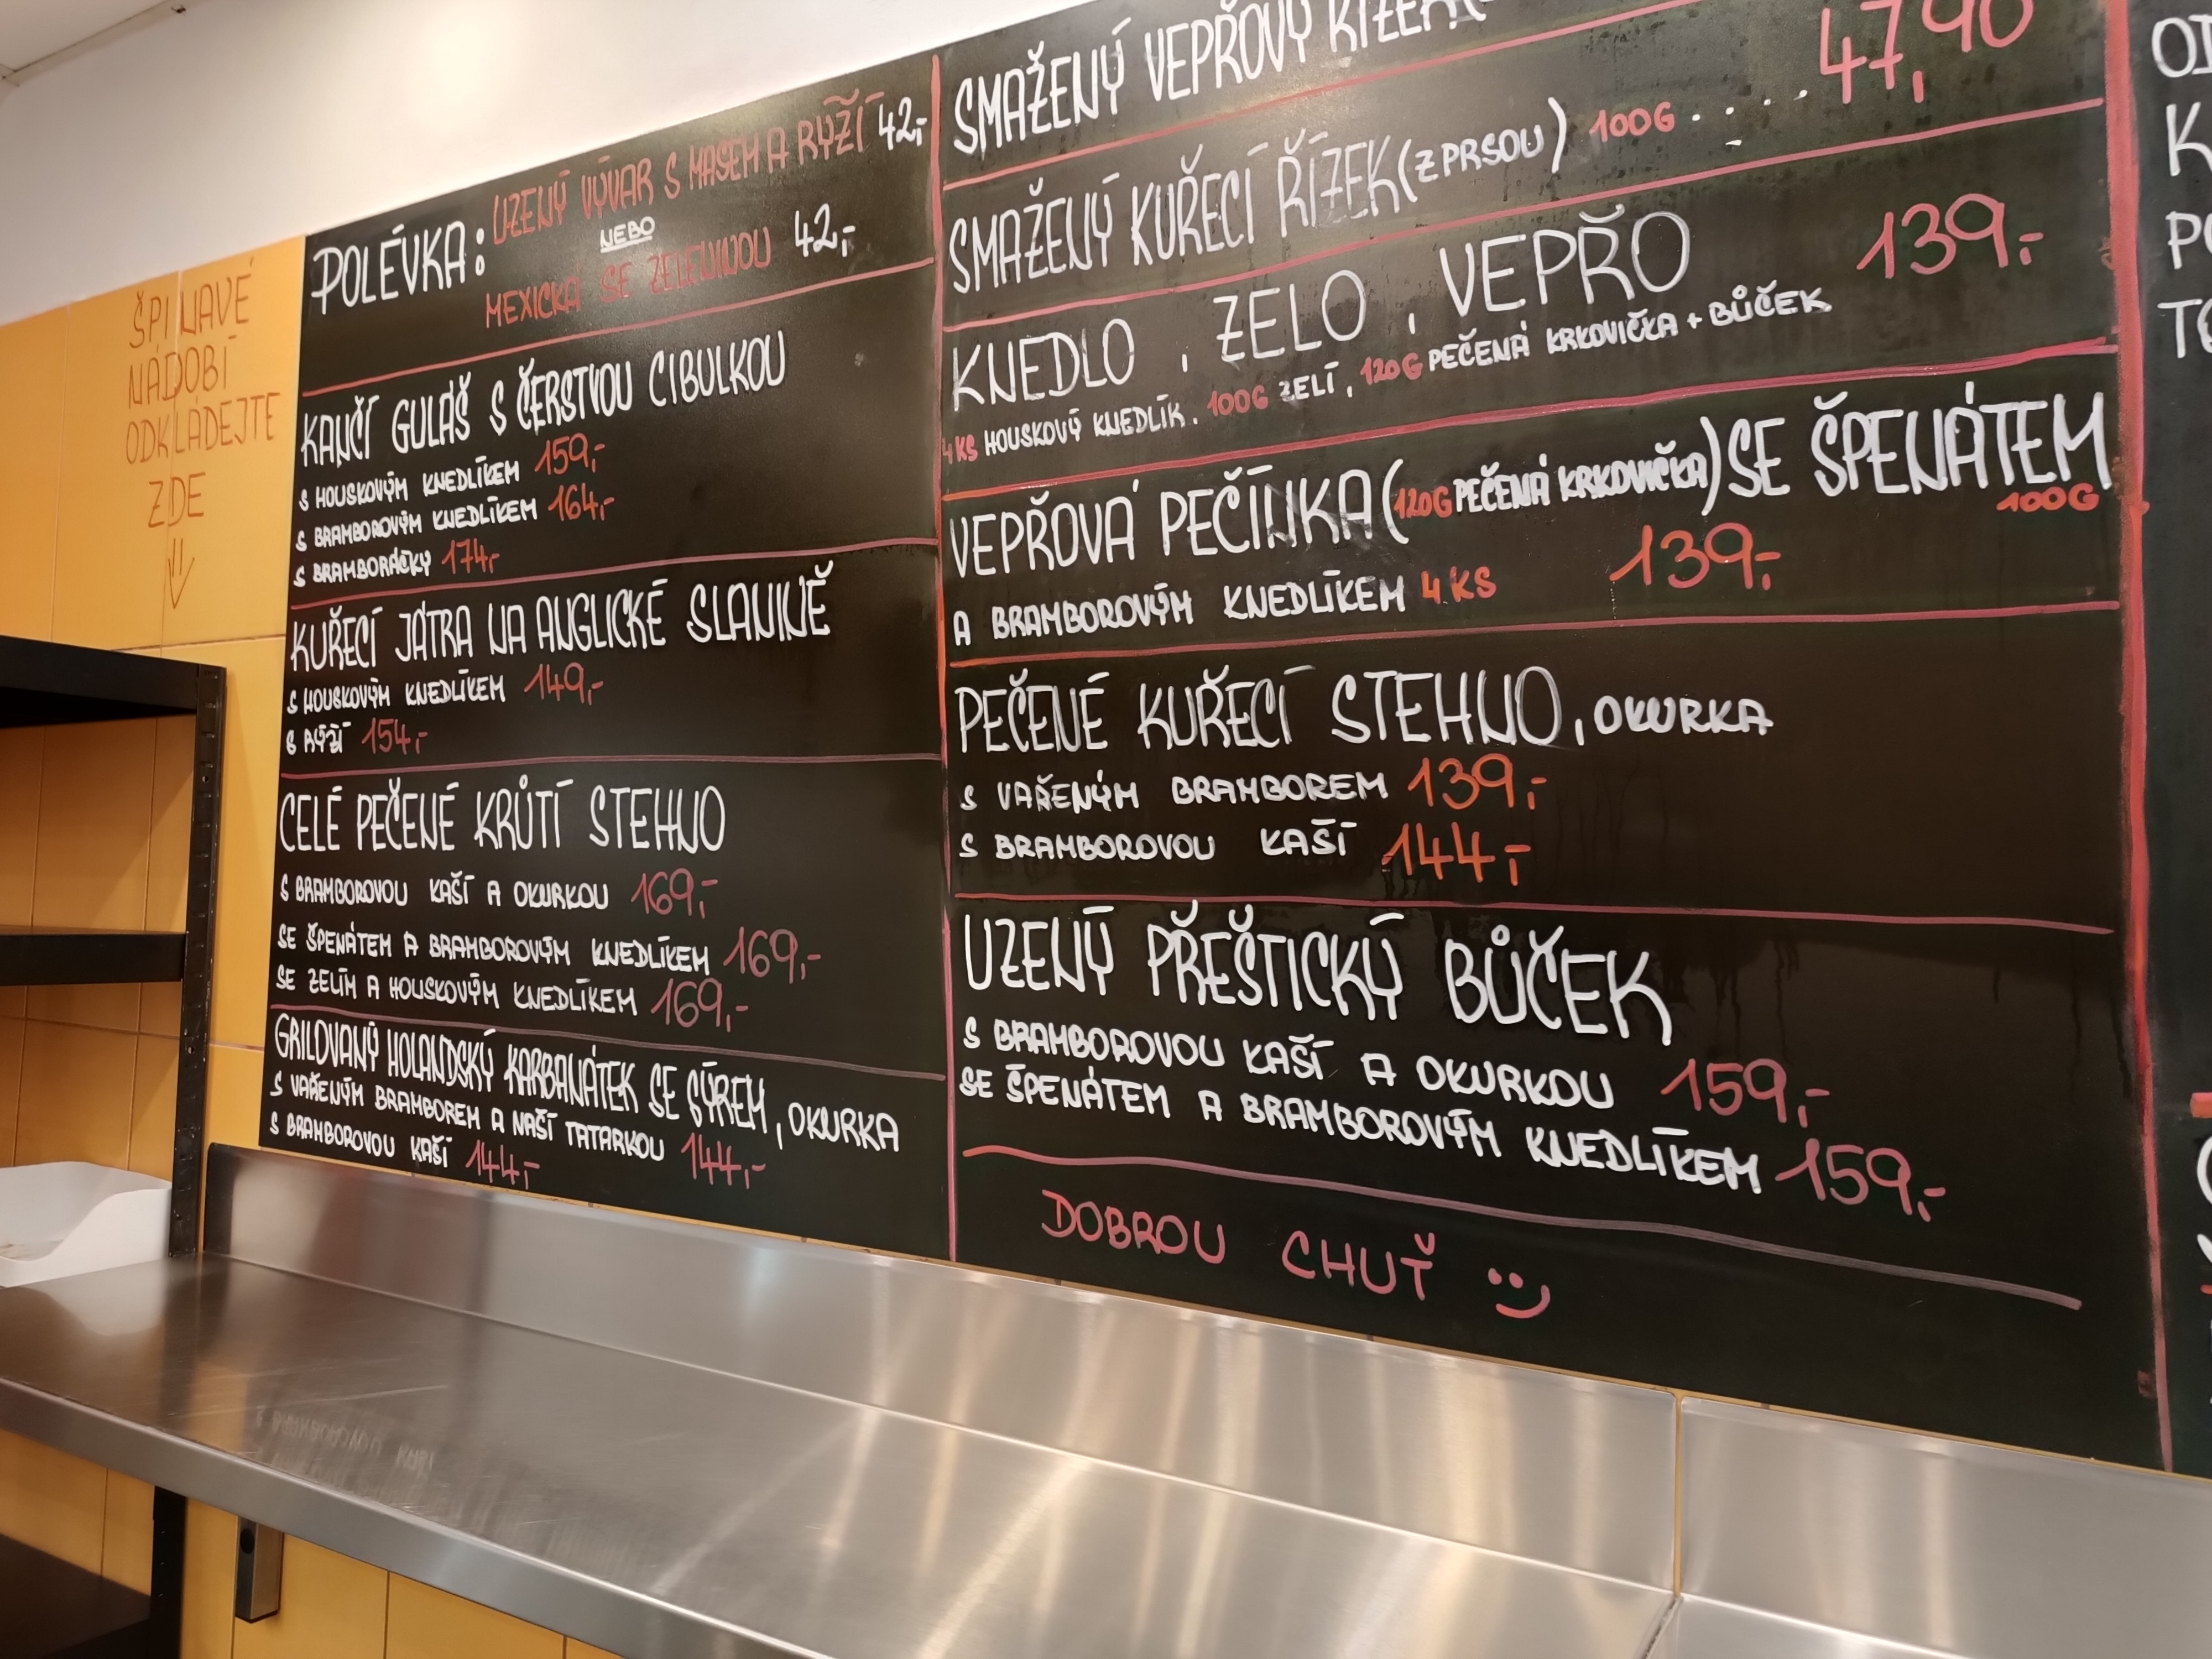 ŠPINAVÉ
NÁDOBÍ
ODKLÁDEJTE
ZDE
POLÉVKA: UZENÝ VÝVAR S MASEM A RÝŽÍ 42,-
NEBO
MEXICKÁ SE ZELENINOU 42,-
KANČÍ GULÁŠ S ČERSTVOU CIBULKOU
S HOUSKOVÝM KNEDLÍKEM 159,-
S BRAMBOROVÝM KNEDLÍKEM 164,-
S BRAMBORÁČKY 174,-
KUŘECÍ JÁTRA NA ANGLICKÉ SLANINĚ
S HOUSKOVÝM KNEDLÍKEM 149,-
S RÝŽÍ 154,-
CELÉ PEČENÉ KRŮTÍ STEHNO
S BRAMBOROVOU KAŠÍ A OKURKOU 169,-
SE ŠPENÁTEM A BRAMBOROVÝM KNEDLÍKEM 169,-
SE ZELÍM A HOUSKOVÝM KNEDLÍKEM 169,-
GRILOVANÝ HOLANDSKÝ KARBANÁTEK SE SÝREM, OKURKA
S VAŘENÝM BRAMBOREM A NAŠÍ TATARKOU 144,-
S BRAMBOROVOU KAŠÍ 144,-
SMAŽENÝ VEPŘOVÝ ŘÍZEK
SMAŽENÝ KUŘECÍ ŘÍZEK (Z PRSOU) 100G .... 47,90
KNEDLO, ZELO, VEPŘO 139,-
4KS HOUSKOVÝ KNEDLÍK, 100G ZELÍ, 120G PEČENÁ KRKOVIČKA + BŮČEK
VEPŘOVÁ PEČÍNKA (120G PEČENÁ KRKOVIČKA) SE ŠPENÁTEM
100G
A BRAMBOROVÝM KNEDLÍKEM 4KS 139,-
PEČENÉ KUŘECÍ STEHNO, OKURKA
S VAŘENÝM BRAMBOREM 139,-
S BRAMBOROVOU KAŠÍ 144,-
UZENÝ PŘEŠTICKÝ BŮČEK
S BRAMBOROVOU KAŠÍ A OKURKOU 159,-
SE ŠPENÁTEM A BRAMBOROVÝM KNEDLÍKEM 159,-
DOBROU CHUŤ